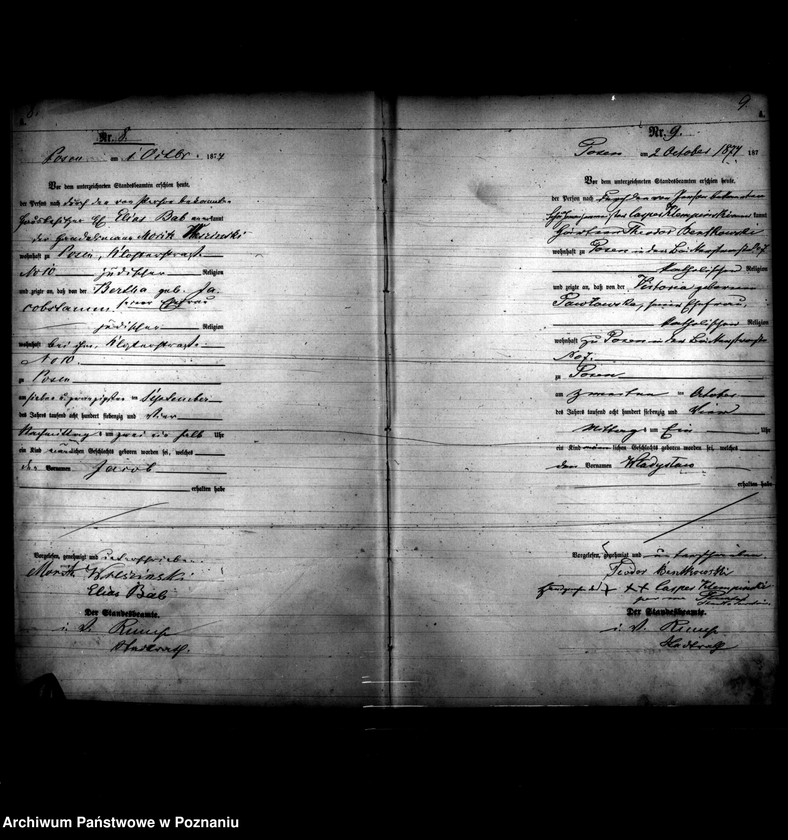 8.
Nr. 8.
Posen am 1 Octbr. 1874
Vor dem unterzeichneten Standesbeamten erschien heute,
der Person nach durch den von Person bekannten
Hausbesitzer Elias Bab anerkannt
der Handelsmann Moritz
wohnhaft zu Posen, Klosterstraße
No 10 jüdischer Religion
und zeigte an, daß von der Bertha geb. Ja
cobstamm seiner Ehefrau
jüdischer Religion
wohnhaft bei ihm, Klosterstraße
No 10
zu Posen
am sieben u zwanzigsten September
des Jahres tausend acht hundert siebenzig und vier
Nachmittags um zwei ein halb Uhr
ein Kind männlichen Geschlechts geboren worden sei, welches
den Vornamen Jacob
erhalten habe
Vorgelesen, genehmigt und unterschrieben.
Moritz
Elias Bab
Der Standesbeamte.
i. V. Rump
Stadtrath.
9.
Nr. 9.
Posen am 2 October 1874 187
Vor dem unterzeichneten Standesbeamten erschien heute,
der Person nach durch den von Person bekannten
Caspar Klempinski anerkannt
Theodor Bentkowski
wohnhaft zu Posen in der
katholischer Religion
und zeigte an, daß von der Victoria geborenen
Pawlowska, seiner Ehefrau
katholischer Religion
wohnhaft zu Posen in der
No 7.
zu Posen
am zweiten October
des Jahres tausend acht hundert siebenzig und vier
Mittags um Ein Uhr
ein Kind männlichen Geschlechts geboren worden sei, welches
den Vornamen Władysław
erhalten habe
Vorgelesen, genehmigt und unterschrieben
Teodor Bentkowski
+++ Casper Klempinski
Der Standesbeamte.
i. V. Rump
Stadtrath
Archiwum Państwowe w Poznaniu